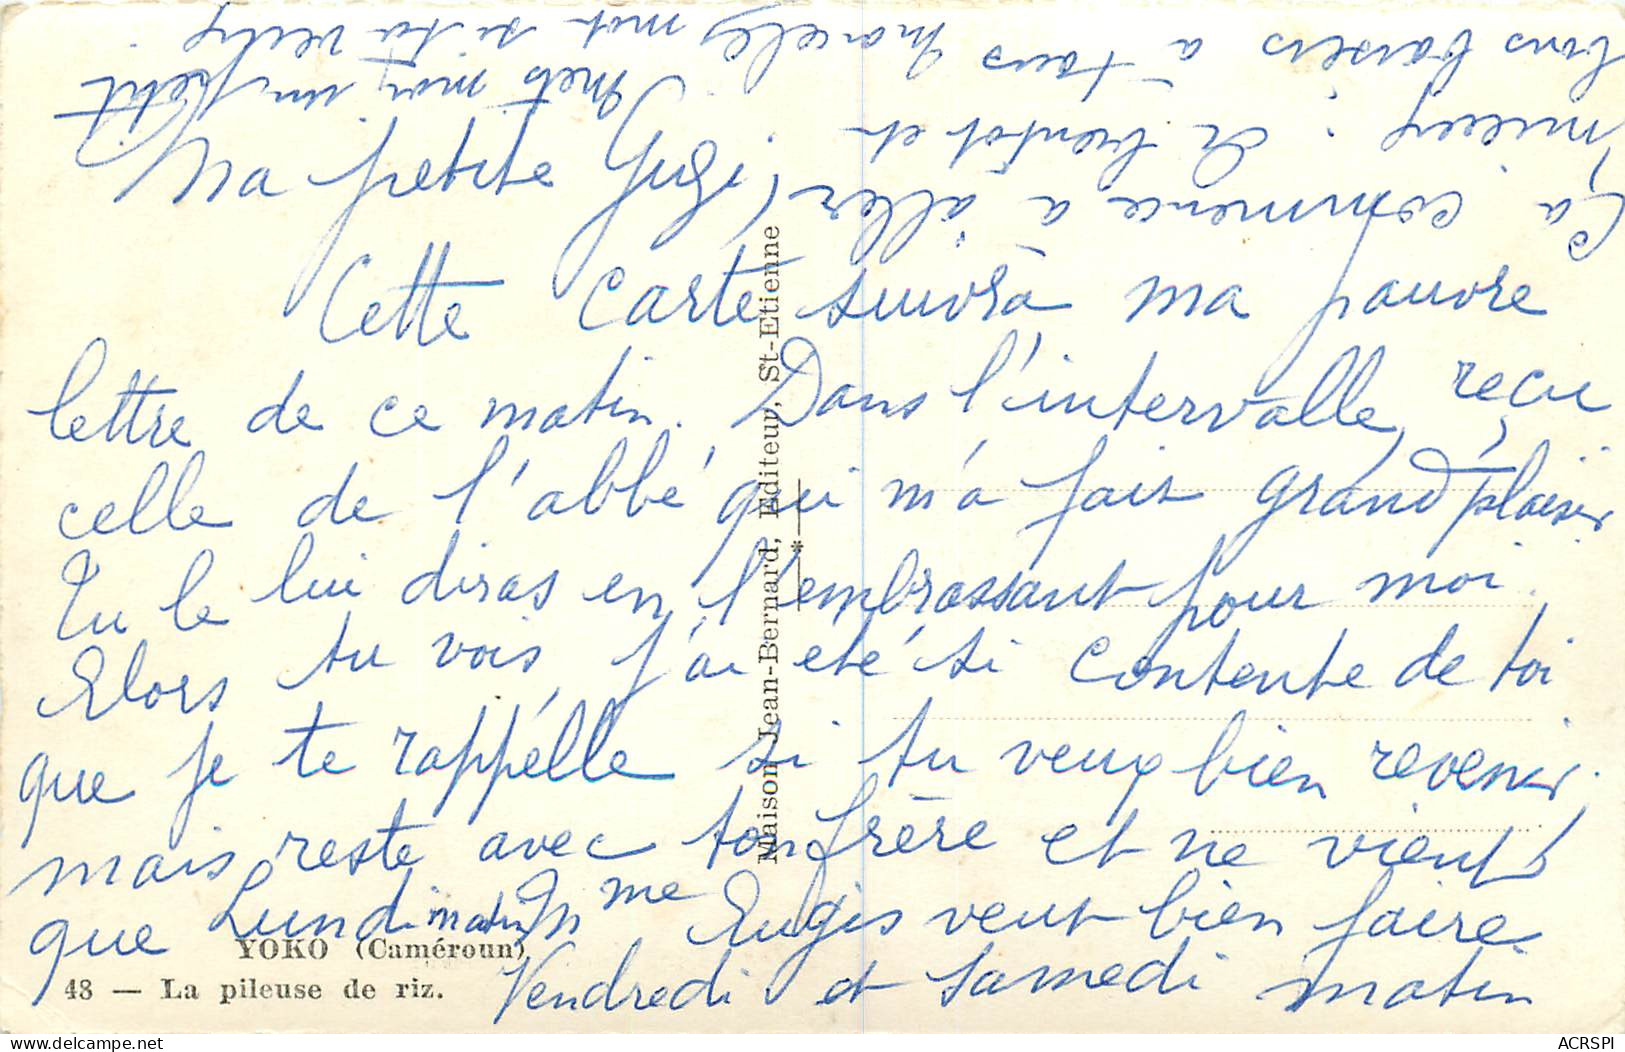 Ma petite Gugi,
Cette carte suivra ma pauvre
lettre de ce matin. Dans l'intervalle, reçu
celle de l'abbé qui m'a fait grand plaisir
Tu le lui diras en l'embrassant pour moi.
Alors tu vois, j'ai été si contente de toi
que je te rappelle si tu veux bien revenir,
mais reste avec ton frère et ne vient
que Lundi matin Mme Eugis veut bien faire
Vendredi et samedi matin
Ça commence à aller
mieux : à bientôt et
bons baisers à tous Marcelle
Mets moi un petit
mot si tu veux
YOKO (Caméroun)
48 — La pileuse de riz.
Maison Jean-Bernard, Editeur, St-Etienne
ACRSPI